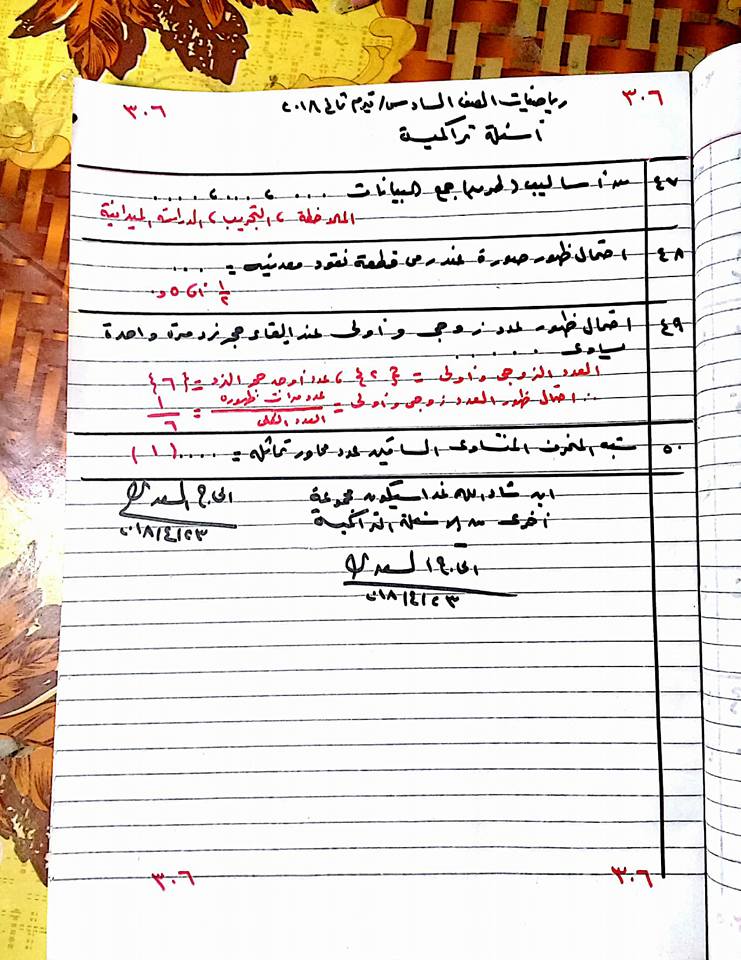 ٣٠٦ رياضيات الصف السادس/تيرم ثاني ٢٠١٨ ٣٠٦
أسئلة تراكمية
٤٧ من أساليب (طرق) جمع البيانات ... ، ... ، ....
الملاحظة ، التجريب ، الدراسة الميدانية
٤٨ احتمال ظهور صورة عند رمى قطعة نقود معدنية = ...
١/٢ أى ٥و.
٤٩ احتمال ظهور عدد زوجى وأولى عند إلقاء حجر نرد مرة واحدة
يساوى ......
العدد الزوجى وأولى = {٢} ، عدد أوجه حجر النرد = {٦}
∴ احتمال ظهور العدد زوجى وأولى = عدد مرات ظهوره / العدد الكلى = ١/٦
٥٠ شبه المنحرف المتساوى الساقين عدد محاور تماثله = .... (١)
إن شاء الله غدا سيكون مجموعة
أخرى من الأسئلة التراكمية
٢٠١٨/٤/٢٣
٢٠١٨/٤/٢٣
٣٠٦ ٣٠٦